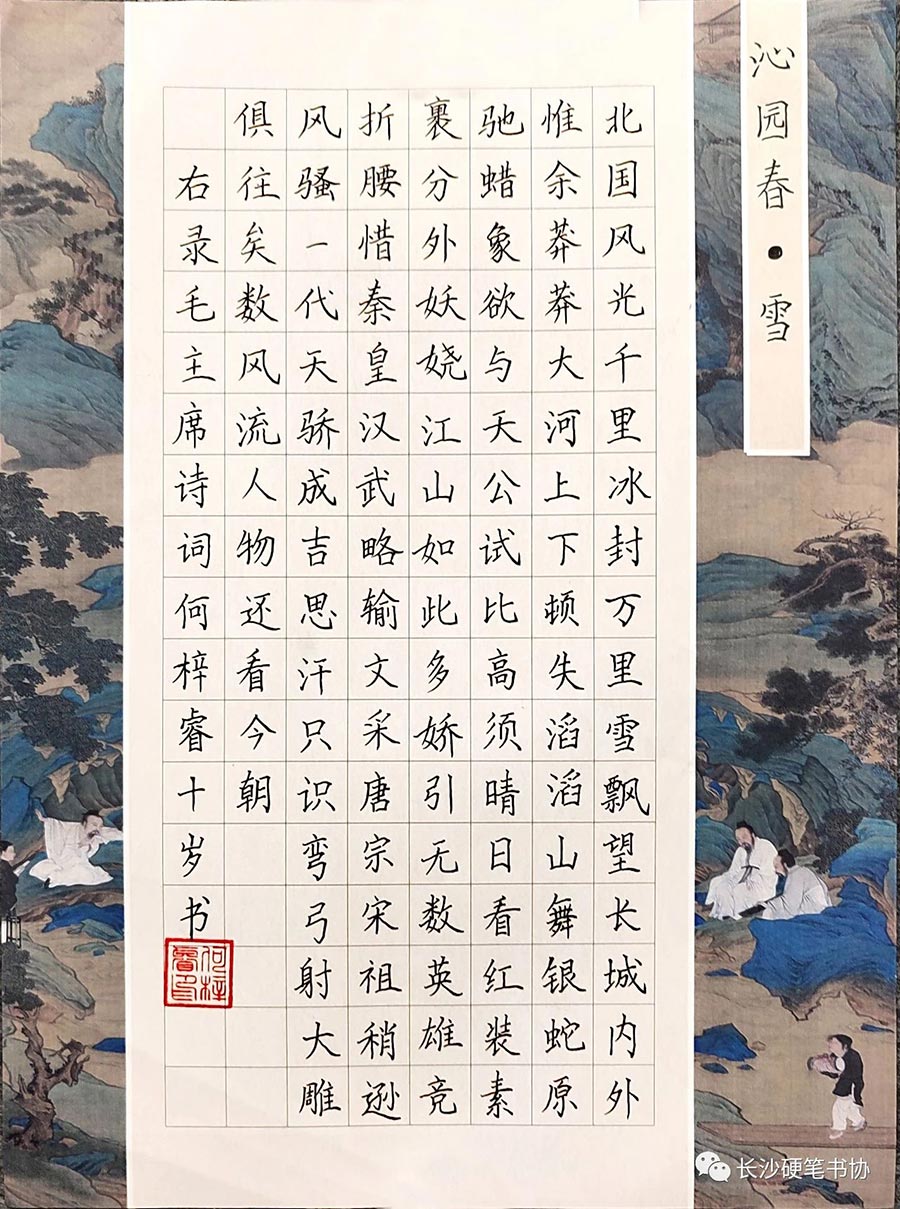 沁园春·雪
北国风光千里冰封万里雪飘望长城内外
惟余莽莽大河上下顿失滔滔山舞银蛇原
驰蜡象欲与天公试比高须晴日看红装素
裹分外妖娆江山如此多娇引无数英雄竞
折腰惜秦皇汉武略输文采唐宗宋祖稍逊
风骚一代天骄成吉思汗只识弯弓射大雕
俱往矣数风流人物还看今朝
右录毛主席诗词何梓睿十岁书
何梓睿印
长沙硬笔书协